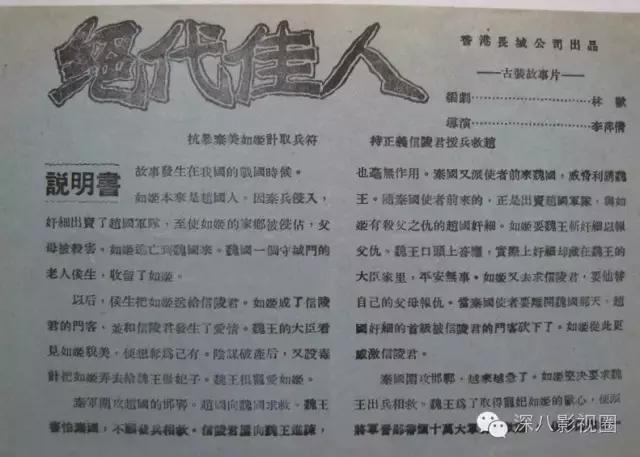 絕代佳人
香港長城公司出品
——古裝故事片——
編劇……………林歡
導演……………李萍倩
抗暴秦美如姬計取兵符
持正義信陵君援兵救趙
說明書
故事發生在我國的戰國時候。
如姬本來是趙國人。因秦兵侵入，
奸細出賣了趙國軍隊，至使如姬的家鄉被侵佔，父
母被殺害。如姬逃亡到魏國來。魏國一個守城門的
老人侯生，收留了如姬。
以后，侯生把如姬送給信陵君。如姬成了信陵
君的門客，並和信陵君發生了愛情。魏王的大臣看
見如姬貌美，便想奪為己有。陰謀破產后，又設毒
計把如姬弄去給魏王做妃子。魏王很寵愛如姬。
秦軍圍攻趙國的邯鄲。趙國向魏國求救。魏王
害怕秦國，不願發兵相救。信陵君屢向魏王進諫，
也毫無作用。秦國又派使者前來魏國，威脅利誘魏
王。隨秦國使者前來的，正是出賣趙國軍隊，與如
姬有殺父之仇的趙國奸細。如姬要魏王斬奸細以報
父仇。魏王口頭上答應，實際上奸細却藏在魏王的
大臣家里，平安無事。如姬又去求信陵君，要他替
自己的父母報仇。當秦國使者要離開魏國那天，趙
國奸細的首級被信陵君的門客砍下了。如姬從此更
感激信陵君。
秦國圍攻邯鄲，越來越急了。如姬堅决要求魏
王出兵相救。魏王爲了取得寵妃如姬的歡心，便派
將軍晉鄙帶領十萬大軍
深八影视圈